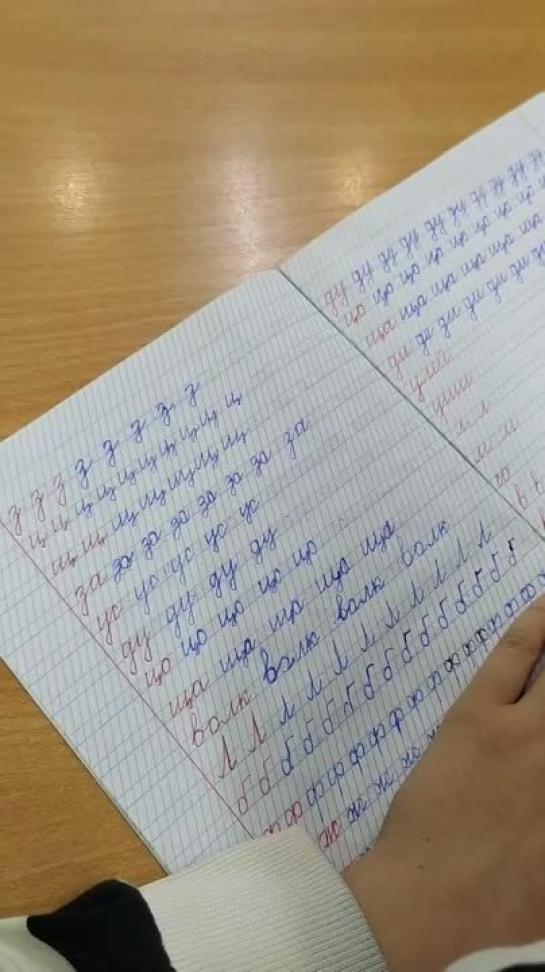 з з з з з з з з з
ц ц ц ц ц ц ц ц ц ц
щ щ щ щ щ щ щ щ
за за за за за за за за
ус ус ус ус ус
ду ду ду ду ду
цо цо цо цо цо
ща ща ща ща ща
волк волк волк волк
Л Л Л Л Л Л Л Л Л Л Л
б б б б б б б б б б б б б
ф ф ф ф ф ф ф ф ф ф
ж ж ж ж ж
ду ду ду ду ду ду ду ду ду ду
цо цо цо цо цо цо цо цо цо
ща ща ща ща ща ща ща
ди ди ди ди ди ди ди
улей
уши
л л
м м